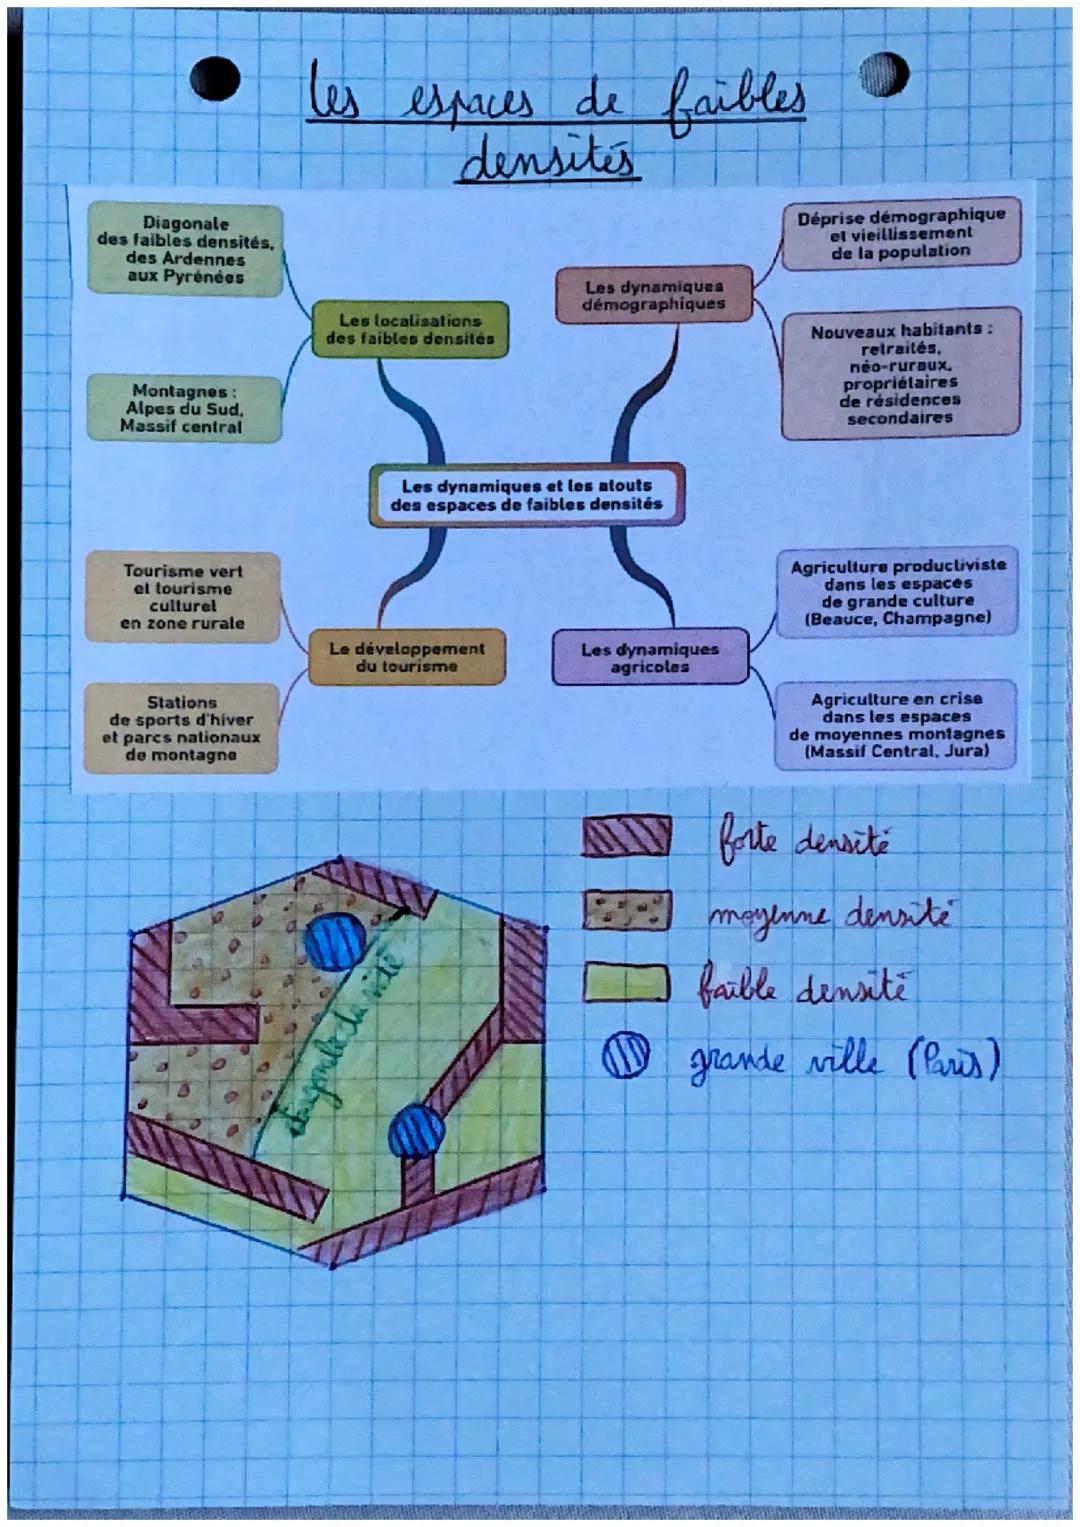 Les espaces de faibles
densités
Diagonale
des faibles densités,
des Ardennes
aux Pyrénées
Montagnes :
Alpes du Sud,
Massif central
Les localisations
des faibles densités
Déprise démographique
et vieillissement
de la population
Les dynamiques
démographiques
Nouveaux habitants :
retraités,
néo-ruraux,
propriétaires
de résidences
secondaires
Les dynamiques et les atouts
des espaces de faibles densités
Tourisme vert
et tourisme
culturel
en zone rurale
Le développement
du tourisme
Stations
de sports d'hiver
et parcs nationaux
de montagne
Agriculture productiviste
dans les espaces
de grande culture
(Beauce, Champagne)
Les dynamiques
agricoles
Agriculture en crise
dans les espaces
de moyennes montagnes
(Massif Central, Jura)
forte densité
moyenne densité
faible densité
grande ville (Paris)
diagonale du vide